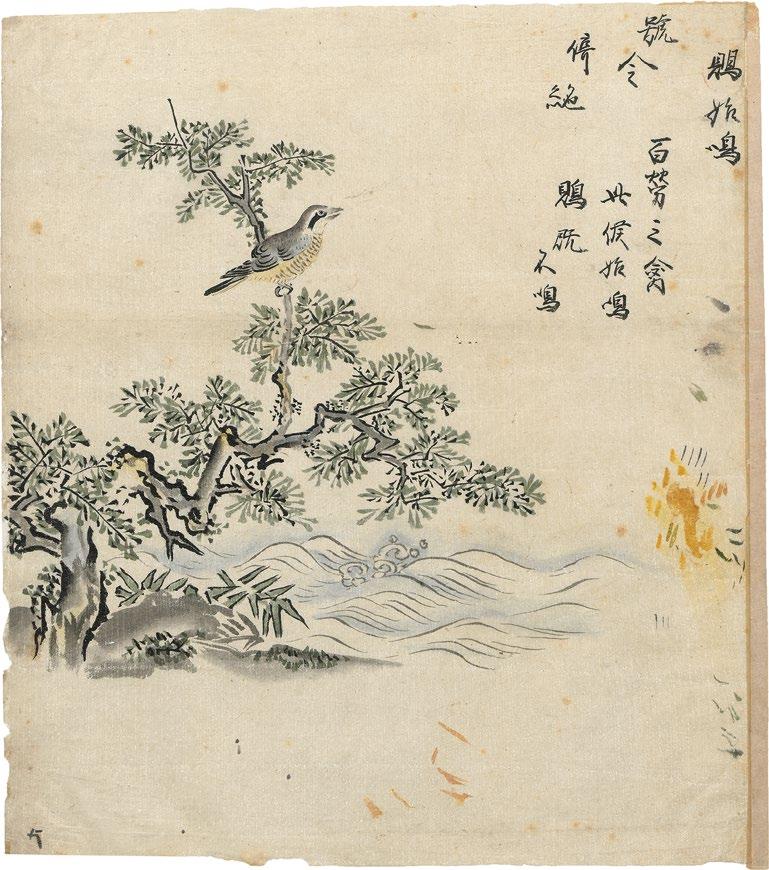 鵙始鳴
百勞之禽
此候始鳴
鵙既
不鳴
號令
絶